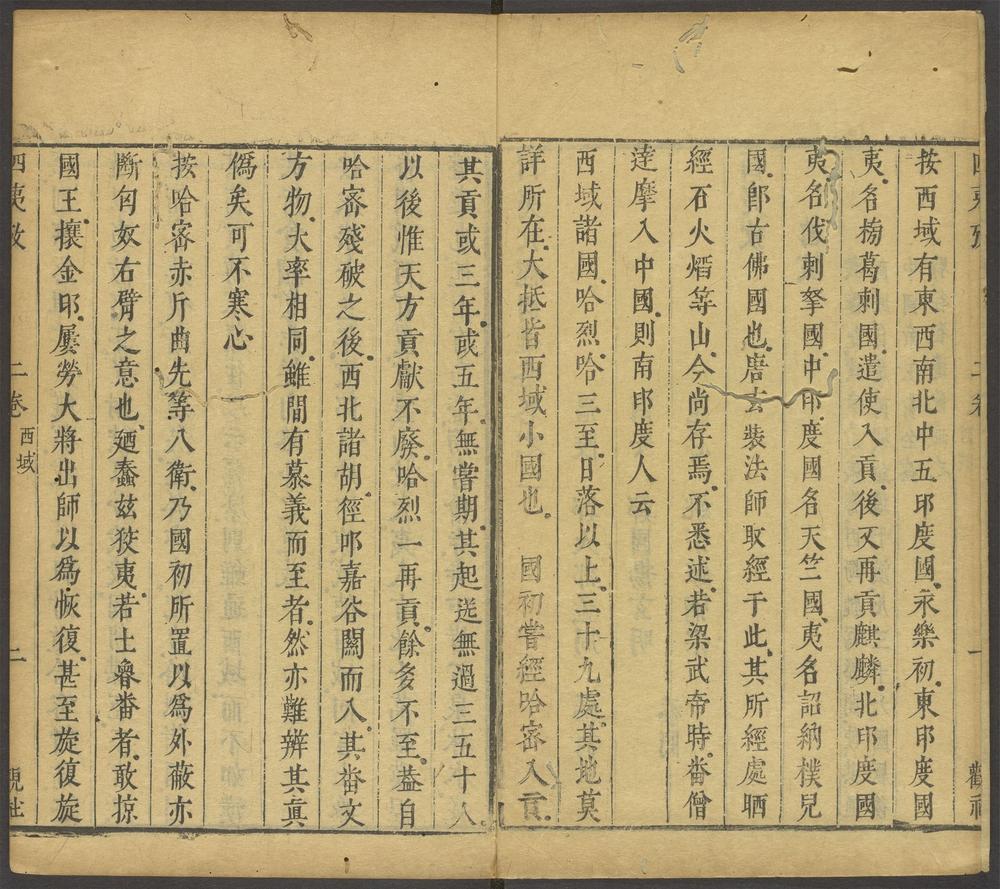 按西域有東西南北中五印度國永樂初東印度國
夷名榜葛剌國遣使入貢後又再貢麒麟北印度國
夷名伐剌拏國中印度國名天竺國夷名詔納樸兒
國卽古佛國也唐玄裝法師取經于此其所經處晒
經石火熖等山今尚存焉不悉述若梁武帝時番僧
達摩入中國則南印度人云
西域諸國哈烈哈三至日落以上三十九處其地莫
詳所在大抵皆西域小國也 國初嘗經哈密入貢
其貢或三年或五年無嘗期其起送無過三五十人
以後惟天方貢獻不廢哈烈一再貢餘多不至葢自
哈密殘破之後西北諸胡徑叩嘉峪關而入其畨文
方物大率相同雖間有慕義而至者然亦難辨其眞
僞矣可不寒心
按哈密赤斤曲先等八衛乃國初所置以爲外蔽亦
斷匈奴右臂之意也廼蠢玆狡夷若土魯番者敢掠
國王攘金印屢勞大將出師以爲恢復甚至旋復旋
四夷攷 二卷 西域 二